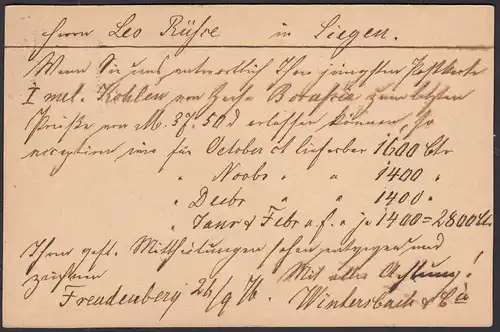 Herrn Leo Rühre in Siegen.
Wenn Sie uns antwortlich Ihrer jüngsten Postkarte
I mel. Kohlen von Zeche Borussia zum letzten
Preise von M. 37.50 d erlassen können, so
wir für October ct lieferbar 1600 Ctr
" Novbr " " 1400 "
" Decbr " " 1400 "
" Janr & Febr a.f. " je 1400 = 2800 Ctr
Ihren gefl. Mittheilungen sehen entgegen und
zeichnen Mit aller Achtung!
Freudenberg 26/9 76. Wintersbach & Cie